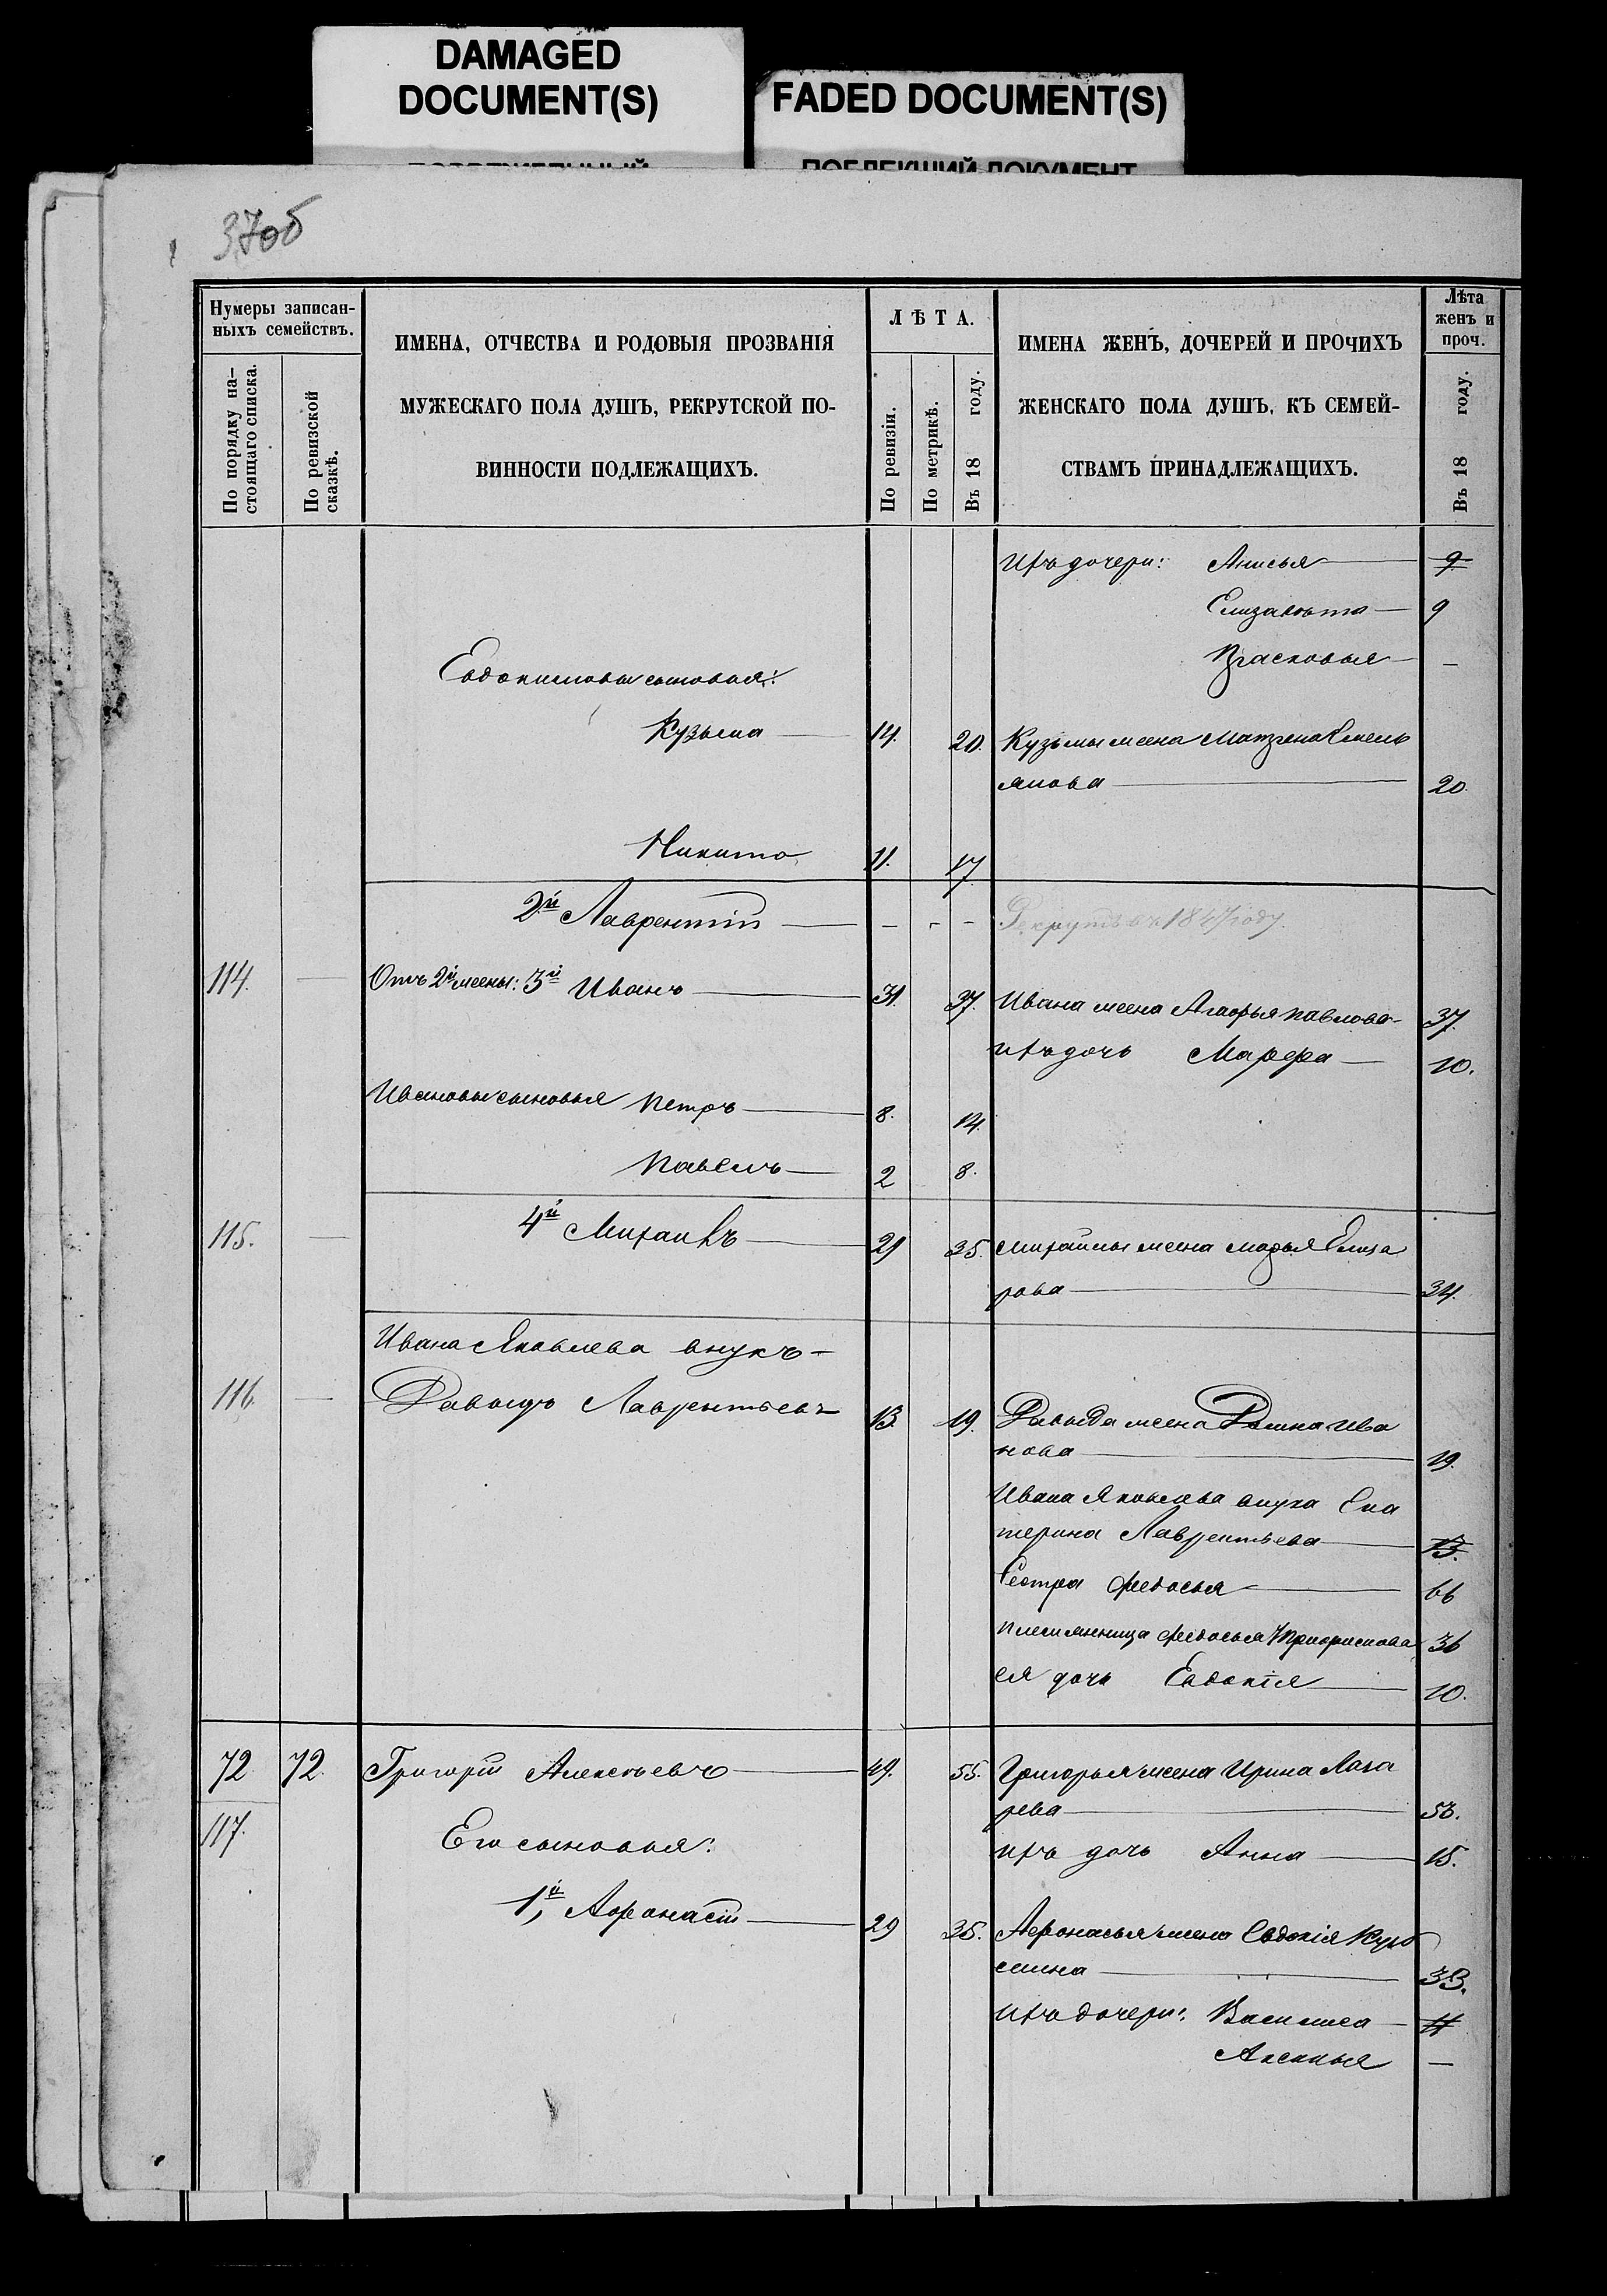 DAMAGED
DOCUMENT(S)
FADED DOCUMENT(S)
37об
Нумеры записан-
ныхъ семействъ.
По порядку на-
стоящаго списка.
По ревизской
сказкѣ.
ИМЕНА, ОТЧЕСТВА И РОДОВЫЯ ПРОЗВАНІЯ
МУЖЕСКАГО ПОЛА ДУШЪ, РЕКРУТСКОЙ ПО-
ВИННОСТИ ПОДЛЕЖАЩИХЪ.
ЛѢТА.
По ревизіи.
По метрикѣ.
Въ 18 году.
ИМЕНА ЖЕНЪ, ДОЧЕРЕЙ И ПРОЧИХЪ
ЖЕНСКАГО ПОЛА ДУШЪ, КЪ СЕМЕЙ-
СТВАМЪ ПРИНАДЛЕЖАЩИХЪ.
Лѣта
женъ и
проч.
Въ 18 году.
Ихъ дочери: Анисья 9
Елизавѣта 9
Прасковья —
Евдокимовы сыновья:
Кузьма 14. 20. Кузьмы жена Матрена Емель
янова 20.
Никита 11. 17
2й Лаврентій — - — Рекрутъ въ 1847 году.
114. — Отъ 2й жены: 3й Иванъ 31. 37. Ивана жена Агафья Павлова 37.
ихъ дочь Марфа 10.
Ивановы сыновья Петръ 8. 14.
Павелъ 2 8.
115. — 4й Михаилъ 29 35. Михаилы жена Марья Елиза
рова 34.
Ивана Яковлева внукъ
116. — Давыдъ Лаврентьевъ 13. 19. Давыда жена Домна Ива
нова 19.
Ивана Яковлева внука Ека
терина Лаврентьева 13.
Сестра Федосья 66
племянница Федосья Трифонова 36
ея дочь Евдокія 10.
72 72. Григорій Алексѣевъ 49. 55. Григорья жена Ирина Лаза
рева 53.
117. Его сыновья:
ихъ дочь Анна 15.
1й, Афонасій 29 35. Афонасья жена Евдокія Кузь
мина 33.
Ихъ дочери: Василиса 11
Аксинья —